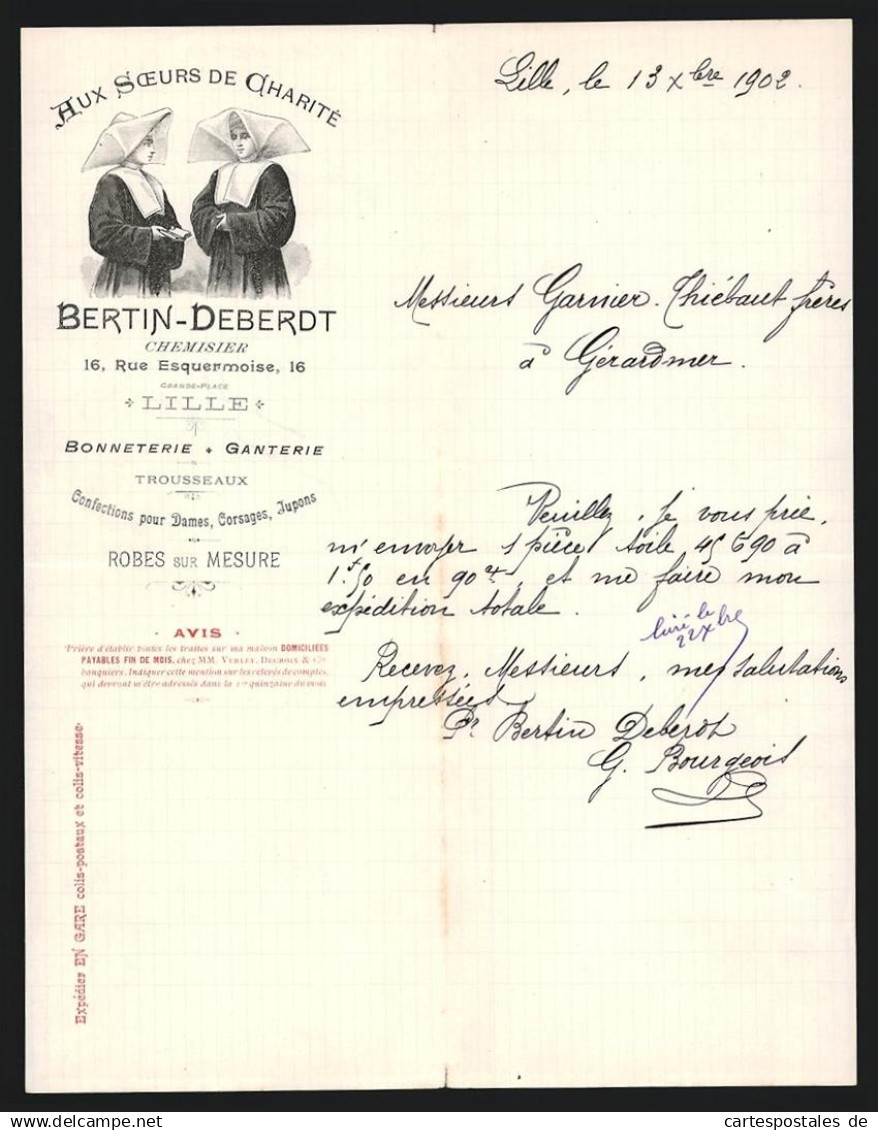 AUX SŒURS DE CHARITÉ
BERTIN-DEBERDT
CHEMISIER
16, RUE ESQUERMOISE, 16
GRANDE-PLACE
LILLE
BONNETERIE GANTERIE
TROUSSEAUX
Confections pour Dames, Corsages, Jupons
ROBES SUR MESURE
AVIS
Prière d'établir toutes les traites sur ma maison DOMICILIÉES
PAYABLES FIN DE MOIS, chez MM. VERLEY, DECROIX & Cie
banquiers. Indiquer cette mention sur les relevés de comptes,
qui devront m'être adressés dans la 1re quinzaine du mois
Expédier EN GARE colis-postaux et colis-vitesse.
Lille, le 13 Xbre 1902.
Messieurs Garnier. Thiébaut frères
à Gérardmer.
Veuillez, je vous prie,
m'envoyer 1 pièce toile 45 690 à
1f.50 en 90, et me faire mon
expédition totale.
livré le
22 Xbre
Recevez, Messieurs, mes salutations
empressées
Pr Bertin Deberdt
G. Bourgeois
cartespostales de